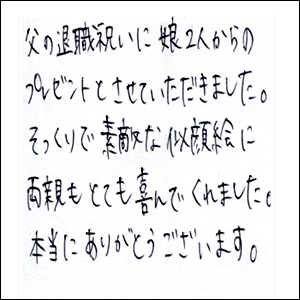 父の退職祝いに娘2人からの
プレゼントとさせていただきました。
そっくりで素敵な似顔絵に
両親もとても喜んでくれました。
本当にありがとうございます。